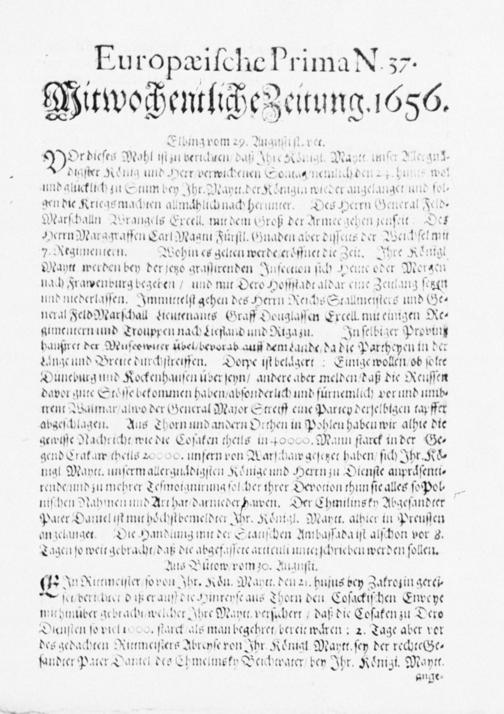 Europæische Prima N. 37.
Mitwochentliche Zeitung. 1656.
Elbing vom 29. Augusti st. vet.
VOr dieses Mahl ist zu berichten/ daß Ihre Königl. Maytt. unser Allergnä-
digster König und Herr verwichenen Sontag/ nemlich den 24. hujus wol
und glücklich zu Stum bey Ihr. Maytt. der Königin wieder angelanget und fol-
gen die Kriegsmachten allmählich nach herunter. Des Herrn General Feld-
Marschalln Wrangels Excell. mit dem Groß der Armee gehen jenseit/ Des
Herrn Marggraffen Carl Magni Fürstl. Gnaden aber disseits der Weichsel mit
7. Regimentern. Wohin es gelten werde/ eröffnet die Zeit. Ihre Königl.
Maytt werden bey der jetzo grassirenden Infection sich Heute oder Morgen
nach Frawenburg begeben/ und mit Dero Hoffstadt aldar eine Zeitlang setzen
und niederlassen. Immittelst gehen des Herrn Reichs Stallmeisters und Ge-
neral Feld Marschall Lieutenants Graff Douglassen Excell. mit einigen Re-
gimentern und Trouppen nach Liefland und Riga zu. In selbiger Provintz
hausiret der Moscowiter übel/ bevorab auff dem Lande/ da die Partheyen in der
Länge und Breite durchstreiffen. Dorpt ist belägert: Einige wollen/ ob solte
Düneburg und Kockenhausen über seyn/ andere aber melden/ daß die Reussen
davor gute Stösse bekommen haben/ absonderlich und fürnemlich vor und umb-
trent Walmar/ alwo der General Major Streiff eine Partey derselbigen tapffer
abgeschlagen. Aus Thorn und andern Orthen in Pohlen haben wir alhie die
gewisse Nachricht/ wie die Cosaken theils in 40000. Mann starck in der Ge-
gend Crakaw theils 20000. unfern von Warschaw gesetzet haben/ sich Ihr. Kö-
nigl. Maytt. unserm allergnädigsten Könige und Herrn zu Dienste anpräsenti-
rende/ und zu mehrer Tesmoignirung solcher ihrer Devotion thun sie alles so Pol-
nischen Nahmen und Art hat/ darnieder hawen. Der Chmilinsky Abgesandter
Pater Daniel ist mit höchstbemeldter Ihr. Königl. Maytt. alhier in Preussen
angelanget. Die Handlung mit der Statischen Ambassada ist alschon vor 8.
Tagen so weit gebracht/ daß die abgefassete articuli unterschrieben werden sollen.
Aus Bütow vom 30. Augusti.
EIn Rittmeister so von Ihr. Kön. Maytt. den 21. hujus bey Zakrozin gerei-
set/ berichtet/ daß er auff die Hinreyse aus Thorn den Cosackischen Envoye
mit hinüber gebracht/ welcher Ihre Maytt. versichert/ daß die Cosaken zu Dero
Diensten so viel 1000. starck als man begehret/ bereit wären: 2. Tage aber vor
des gedachten Rittmeisters Abreyse von Ihr. Königl. Maytt. sey der rechte Ge-
sandter Pater Daniel des Chmelinsky Beichtvater/ bey Ihr. Königl. Maytt.
ange-